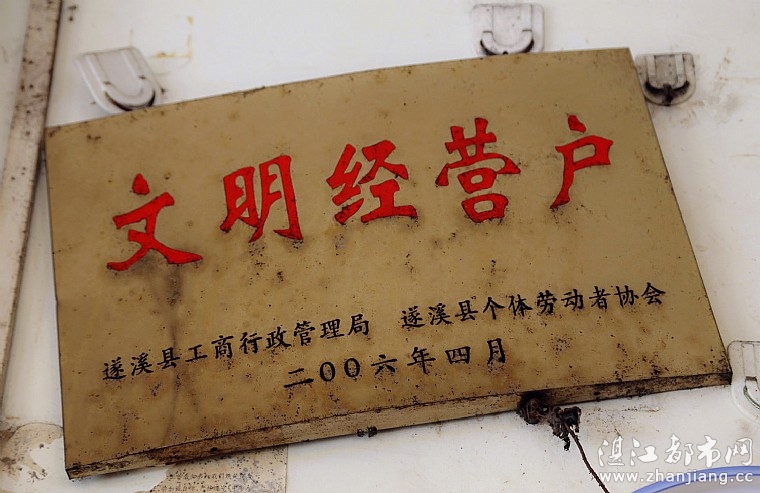 文明经营户
遂溪县工商行政管理局 遂溪县个体劳动者协会
二00六年四月
湛江都市网
www.zhanjiang.cc